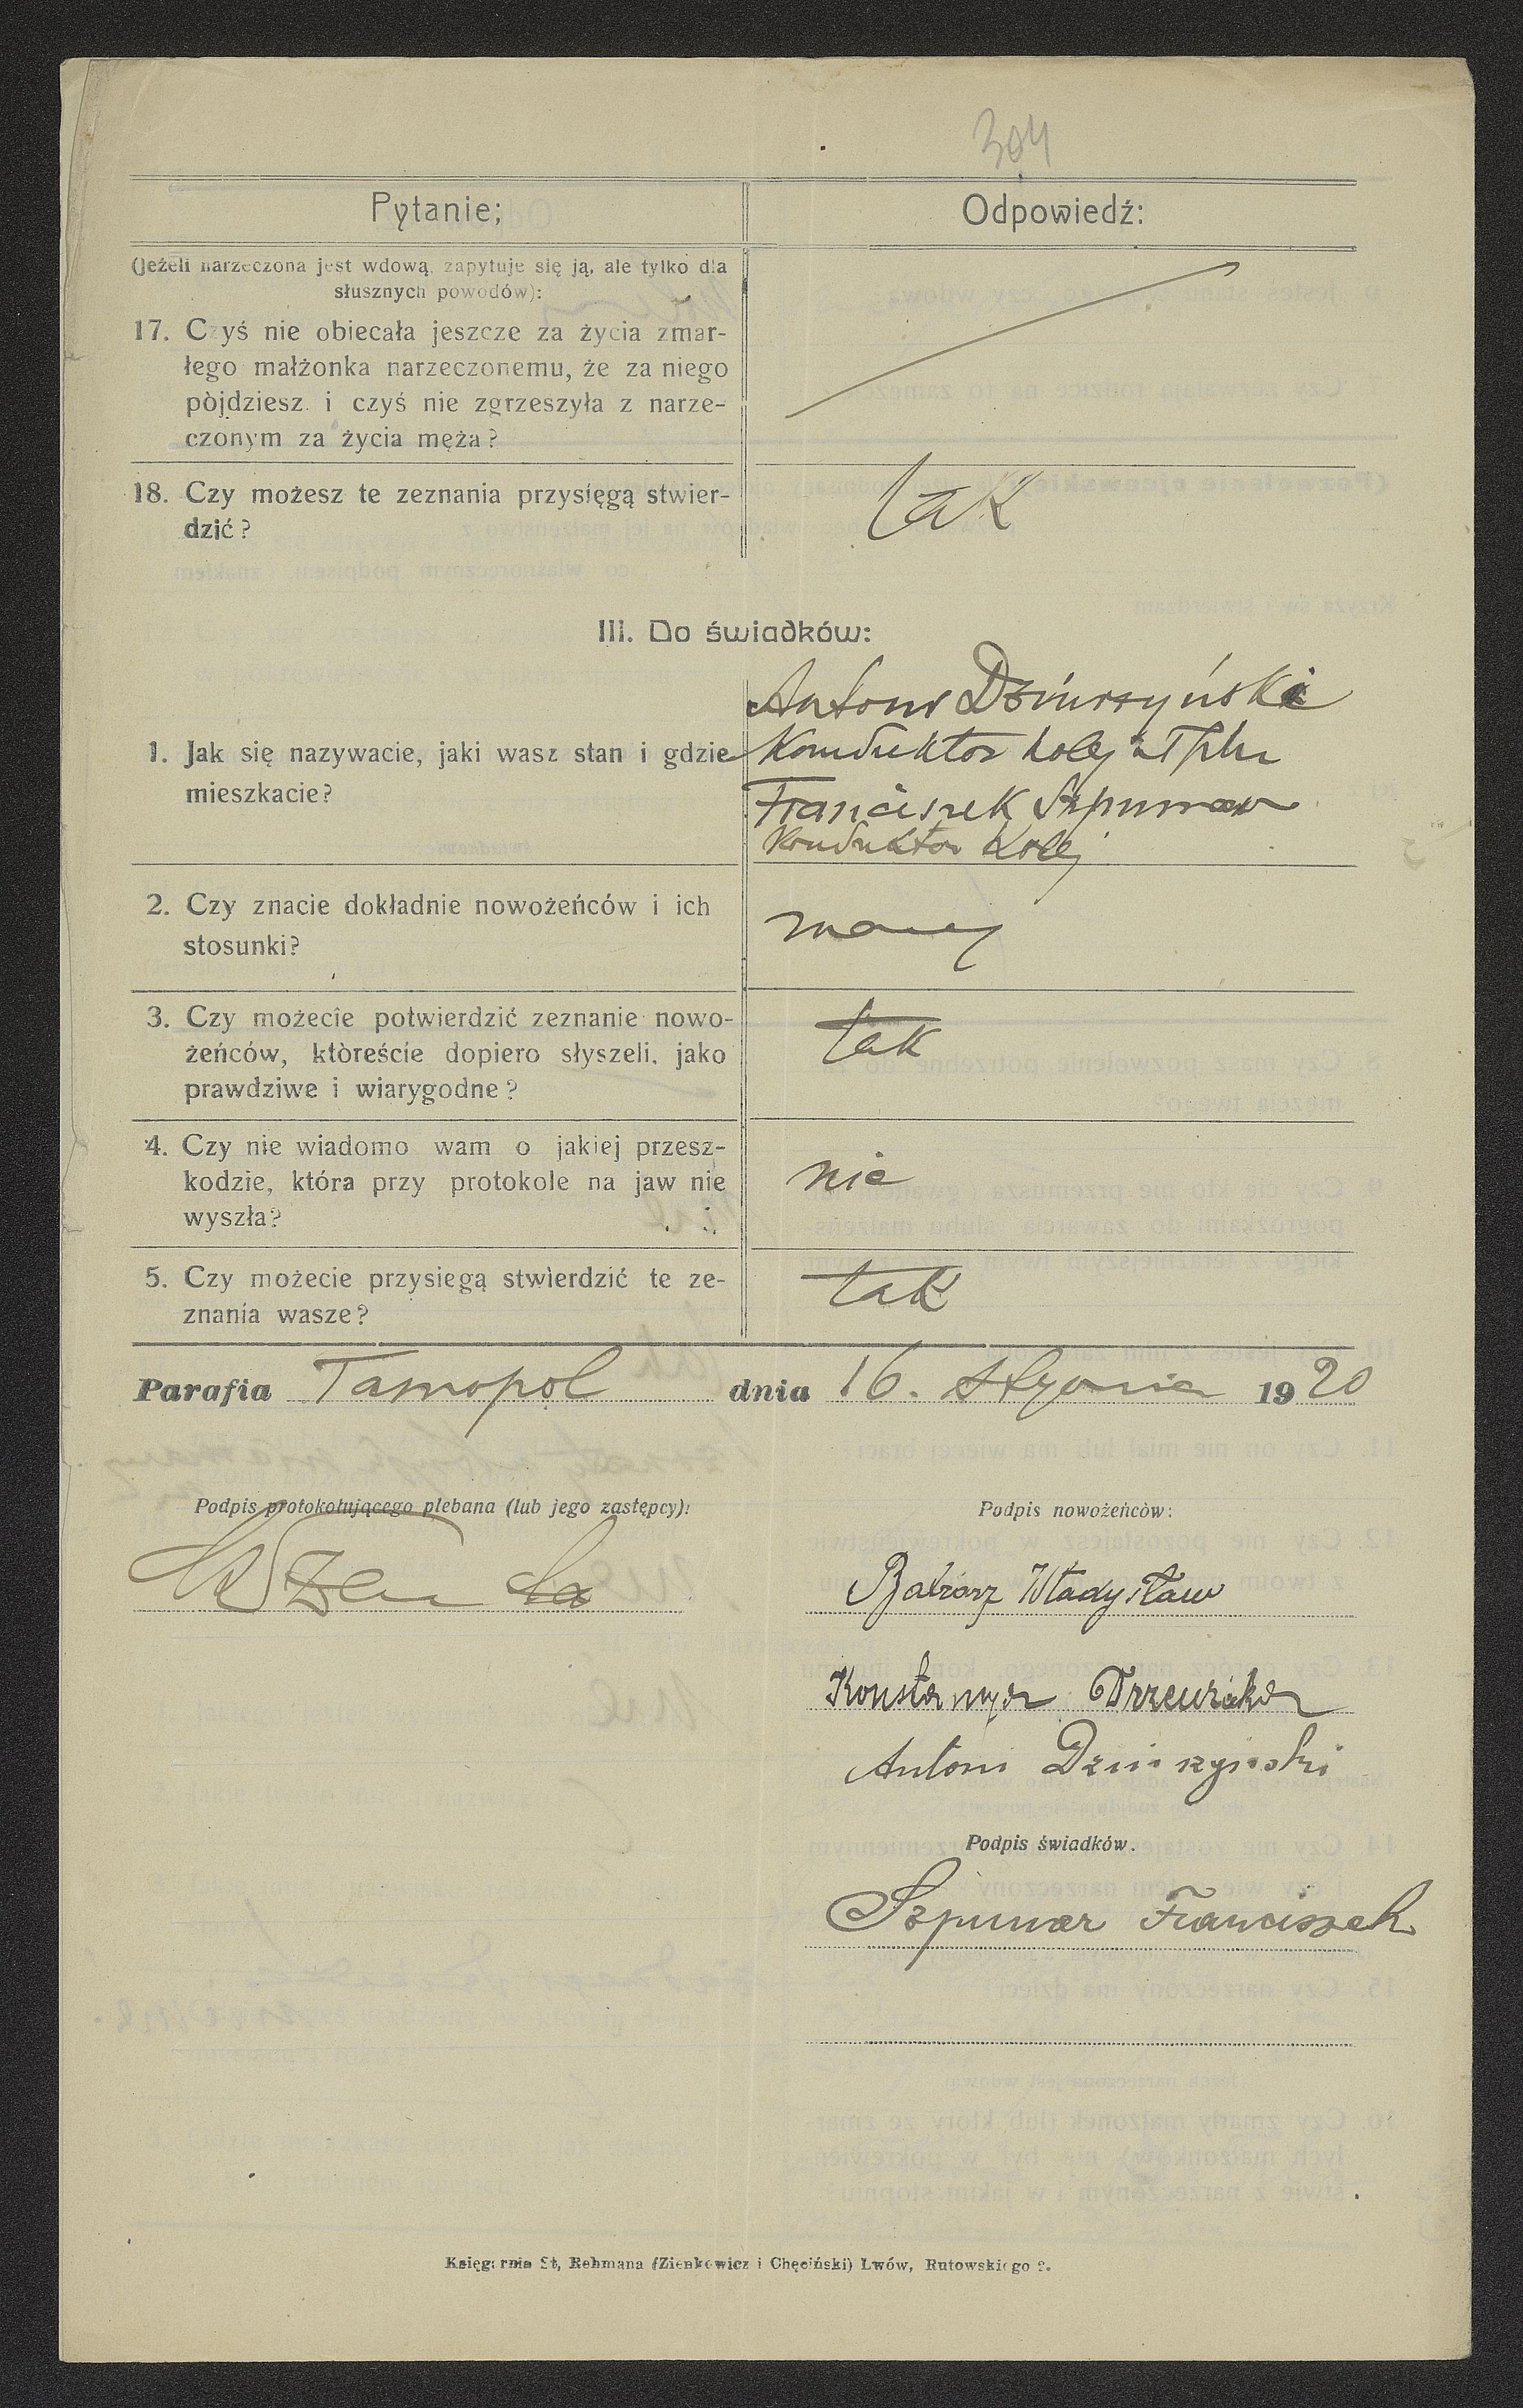 304
Pytanie;
Odpowiedź:
(Jeżeli narzeczona jest wdową, zapytuje się ją, ale tylko dla
słusznych powodów):
17. Czyś nie obiecała jeszcze za życia zmar-
łego małżonka narzeczonemu, że za niego
pòjdziesz. i czyś nie zgrzeszyła z narze-
czonym za życia męża?
18. Czy możesz te zeznania przysięgą stwier-
dzić?
tak
III. Do świadków:
1. Jak się nazywacie, jaki wasz stan i gdzie
mieszkacie?
Antoni Dziurzyński
Konduktor kolej z Tplu
Franciszek Szpunar
Konduktor Kolej
2. Czy znacie dokładnie nowożeńców i ich
stosunki?
znamy
3. Czy możecie potwierdzić zeznanie nowo-
żeńców, któreście dopiero słyszeli, jako
prawdziwe i wiarygodne?
tak
4. Czy nie wiadomo wam o jakiej przesz-
kodzie, która przy protokole na jaw nie
wyszła?
nie
5. Czy możecie przysiegą stwierdzić te ze-
znania wasze?
tak
Parafia Tarnopol dnia 16. stycznia 1920
Podpis protokołującego plebana (lub jego zastępcy):
Podpis nowożeńcòw:
Władysław
Konstancya
Antoni Dziurzyński
Podpis świadków.
Szpunar Franciszek
Księgarnia St, Rehmana (Zienkowicz i Chęciński) Lwów, Rutowskiego 2.